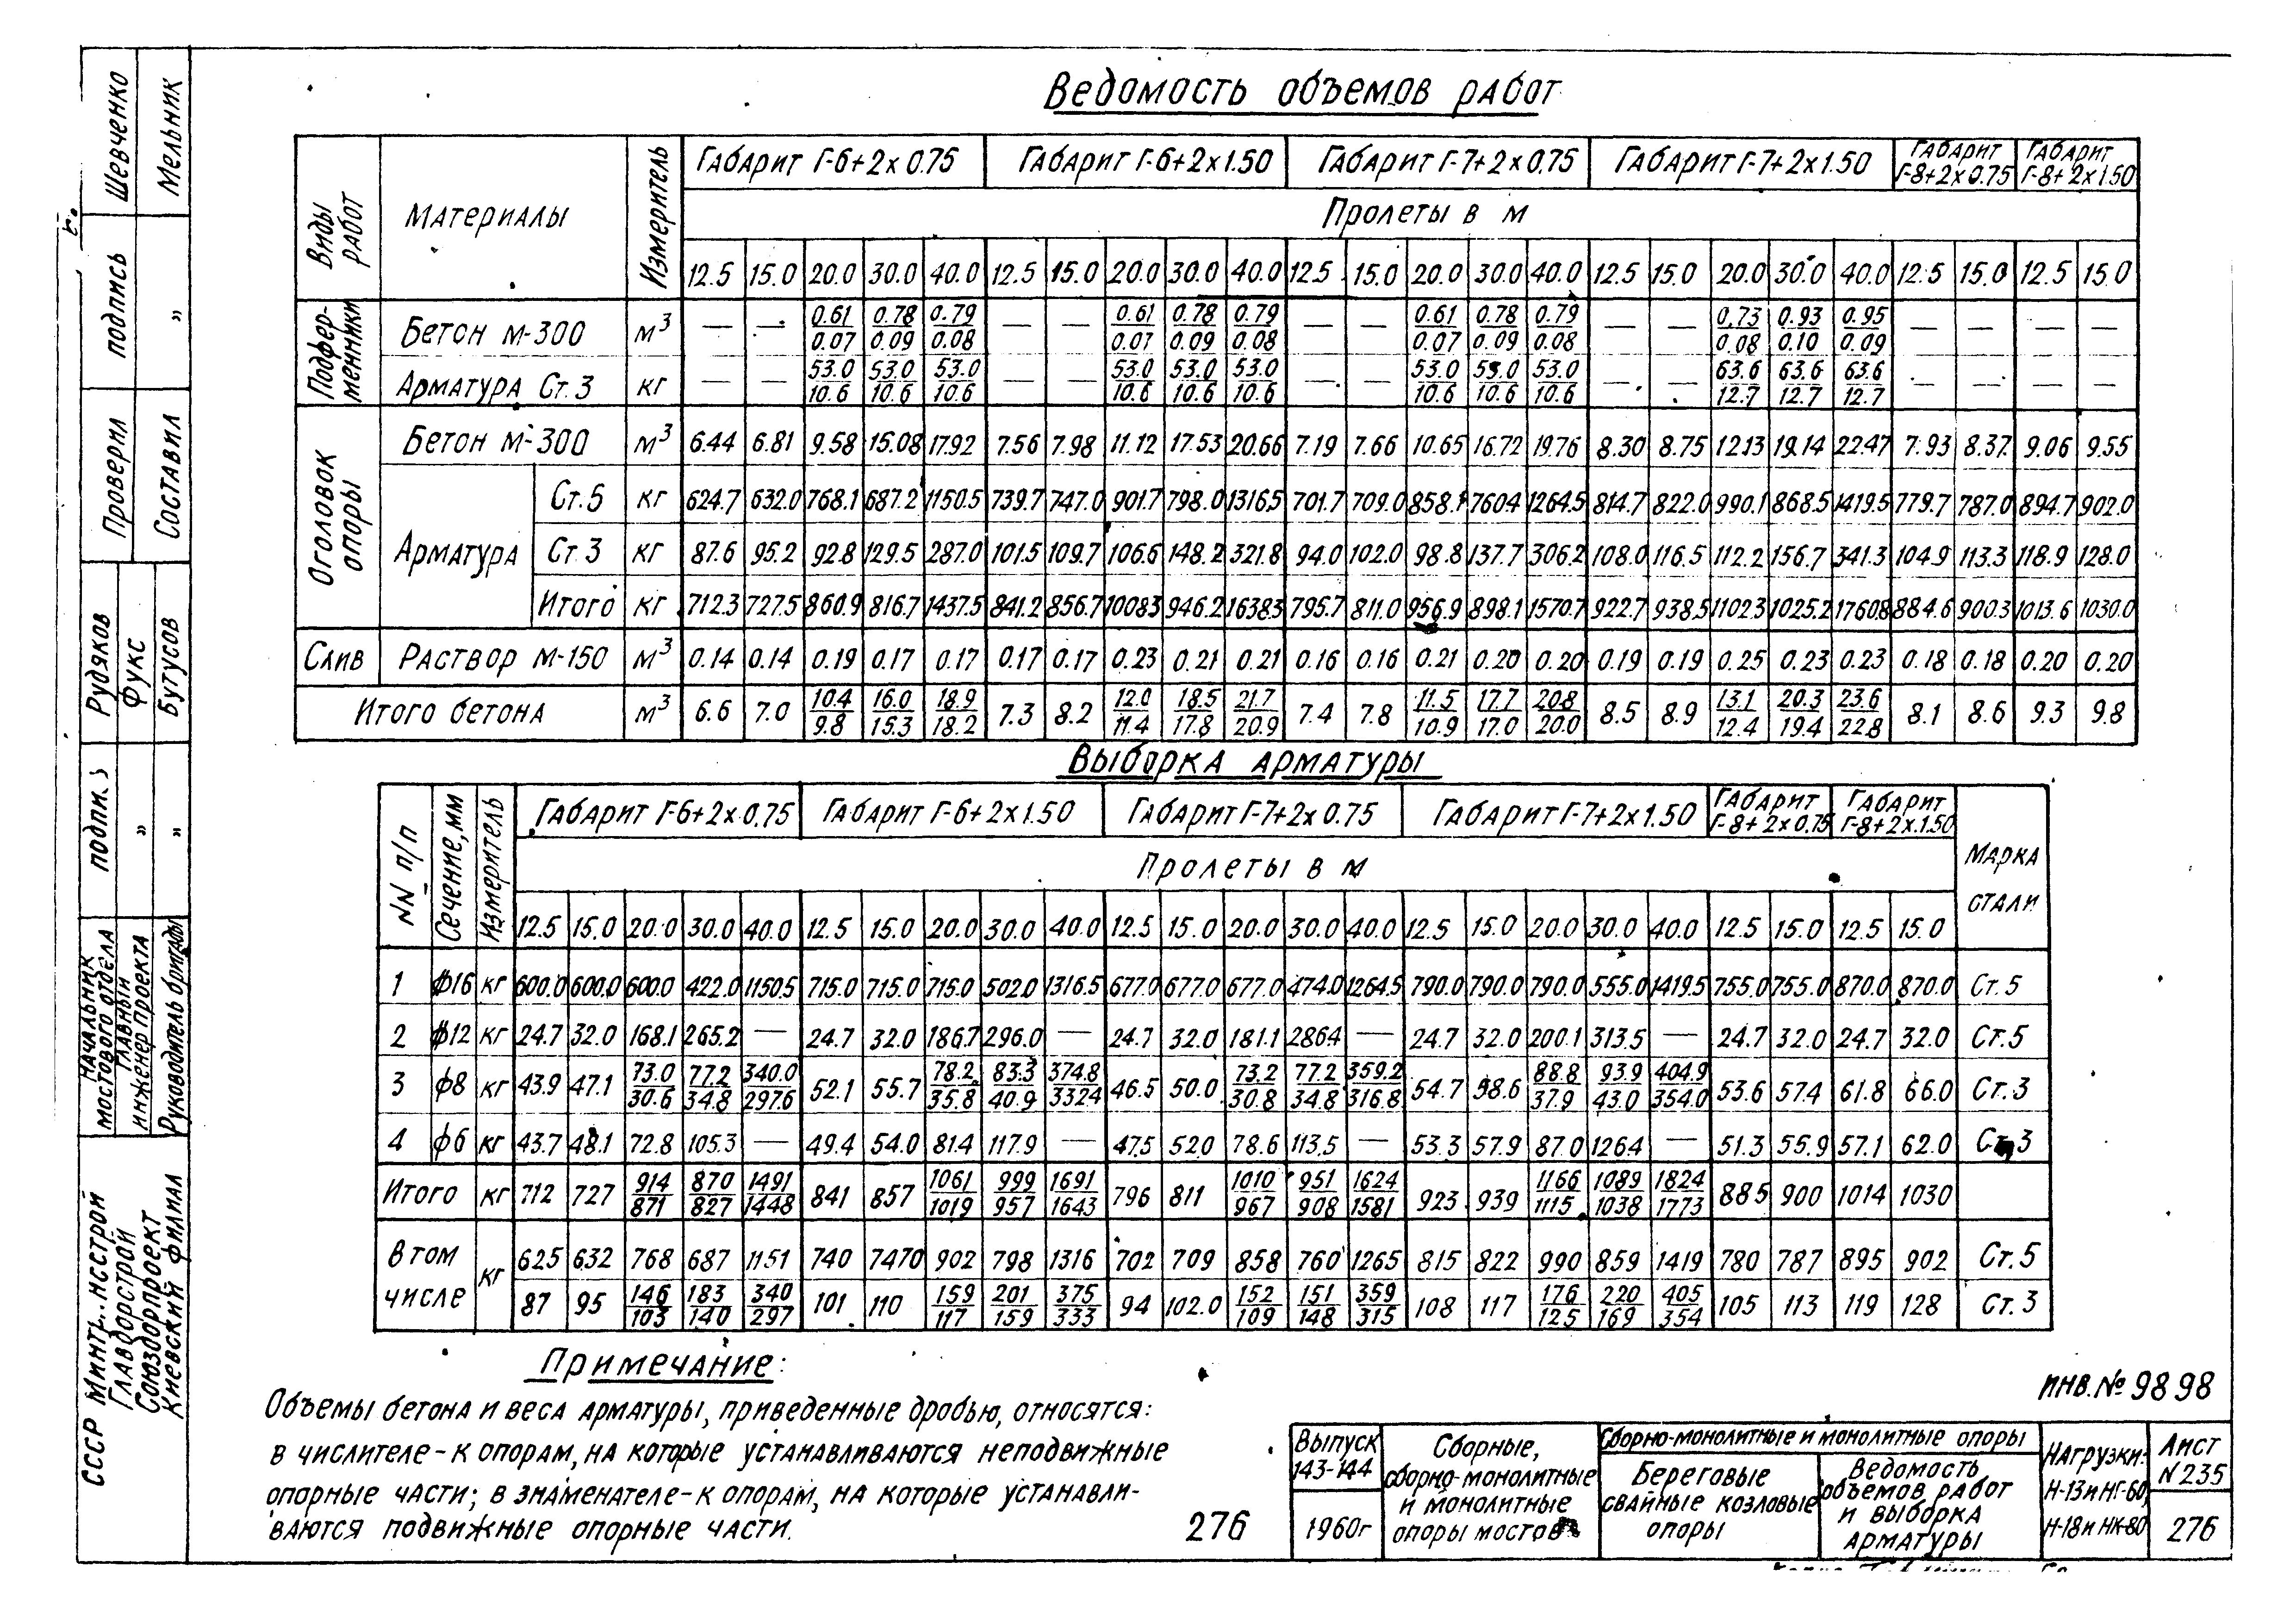 Ведомость объемов работ
Виды работ
Материалы
Измеритель
Габарит Г-6+2х0.75 Габарит Г-6+2х1.50 Габарит Г-7+2х0.75 Габарит Г-7+2х1.50 Габарит Г-8+2х0.75 Габарит Г-8+2х1.50
Пролеты в м
12.5 15.0 20.0 30.0 40.0 12.5 15.0 20.0 30.0 40.0 12.5 15.0 20.0 30.0 40.0 12.5 15.0 20.0 30.0 40.0 12.5 15.0 12.5 15.0
Подферменники
Бетон М-300 м³ — — 0.61/0.07 0.78/0.09 0.79/0.08 — — 0.61/0.07 0.78/0.09 0.79/0.08 — — 0.61/0.07 0.78/0.09 0.79/0.08 — — 0.73/0.08 0.93/0.10 0.95/0.09 — — — —
Арматура Ст.3 кг — — 53.0/10.6 53.0/10.6 53.0/10.6 — — 53.0/10.6 53.0/10.6 53.0/10.6 — — 53.0/10.6 53.0/10.6 53.0/10.6 — — 63.6/12.7 63.6/12.7 63.6/12.7 — — — —
Оголовок опоры
Бетон М-300 м³ 6.44 6.81 9.58 15.08 17.92 7.56 7.98 11.12 17.53 20.66 7.19 7.66 10.65 16.72 19.76 8.30 8.75 12.13 19.14 22.47 7.93 8.37 9.06 9.55
Арматура
Ст.5 кг 624.7 632.0 768.1 687.2 1150.5 739.7 747.0 901.7 798.0 1316.5 701.7 709.0 858.1 760.4 1264.5 814.7 822.0 990.1 868.5 1419.5 779.7 787.0 894.7 902.0
Ст.3 кг 87.6 95.2 92.8 129.5 287.0 101.5 109.7 106.6 148.2 321.8 94.0 102.0 98.8 137.7 306.2 108.0 116.5 112.2 156.7 341.3 104.9 113.3 118.9 128.0
Итого кг 712.3 727.5 860.9 816.7 1437.5 841.2 856.7 1008.3 946.2 1638.3 795.7 811.0 956.9 898.1 1570.7 922.7 938.5 1102.3 1025.2 1760.8 884.6 900.3 1013.6 1030.0
Слив Раствор М-150 м³ 0.14 0.14 0.19 0.17 0.17 0.17 0.17 0.23 0.21 0.21 0.16 0.16 0.21 0.20 0.20 0.19 0.19 0.25 0.23 0.23 0.18 0.18 0.20 0.20
Итого бетона м³ 6.6 7.0 10.4/9.8 16.0/15.3 18.9/18.2 7.3 8.2 12.0/11.4 18.5/17.8 21.7/20.9 7.4 7.8 11.5/10.9 17.7/17.0 20.8/20.0 8.5 8.9 13.1/12.4 20.3/19.4 23.6/22.8 8.1 8.6 9.3 9.8
Выборка арматуры
NN п/п
Сечение, мм
Измеритель
Габарит Г-6+2х0.75 Габарит Г-6+2х1.50 Габарит Г-7+2х0.75 Габарит Г-7+2х1.50 Габарит Г-8+2х0.75 Габарит Г-8+2х1.50
Марка стали
Пролеты в м
12.5 15.0 20.0 30.0 40.0 12.5 15.0 20.0 30.0 40.0 12.5 15.0 20.0 30.0 40.0 12.5 15.0 20.0 30.0 40.0 12.5 15.0 12.5 15.0
1 ф16 кг 600.0 600.0 600.0 422.0 1150.5 715.0 715.0 715.0 502.0 1316.5 677.0 677.0 677.0 474.0 1264.5 790.0 790.0 790.0 555.0 1419.5 755.0 755.0 870.0 870.0 Ст.5
2 ф12 кг 24.7 32.0 168.1 265.2 — 24.7 32.0 186.7 296.0 — 24.7 32.0 181.1 286.4 — 24.7 32.0 200.1 313.5 — 24.7 32.0 24.7 32.0 Ст.5
3 ф8 кг 43.9 47.1 73.0/30.6 77.2/34.8 340.0/297.6 52.1 55.7 78.2/35.8 83.3/40.9 374.8/332.4 46.5 50.0 73.2/30.8 77.2/34.8 359.2/316.8 54.7 58.6 88.8/37.9 93.9/43.0 404.9/354.0 53.6 57.4 61.8 66.0 Ст.3
4 ф6 кг 43.7 48.1 72.8 105.3 — 49.4 54.0 81.4 117.9 — 47.5 52.0 78.6 113.5 — 53.3 57.9 87.0 126.4 — 51.3 55.9 57.1 62.0 Ст.3
Итого кг 712 727 914/871 870/827 1491/1448 841 857 1061/1019 999/957 1691/1643 796 811 1010/967 951/908 1624/1581 923 939 1166/1115 1089/1038 1824/1773 885 900 1014 1030
В том числе кг
625 632 768 687 1151 740 7470 902 798 1316 702 709 858 760 1265 815 822 990 859 1419 780 787 895 902 Ст.5
87 95 146/103 183/140 340/297 101 110 159/117 201/159 375/333 94 102.0 152/109 151/148 359/315 108 117 176/125 220/169 405/354 105 113 119 128 Ст.3
Примечание:
Объемы бетона и веса арматуры, приведенные дробью, относятся:
в числителе – к опорам, на которые устанавливаются неподвижные
опорные части; в знаменателе – к опорам, на которые устанавли-
ваются подвижные опорные части.
276
инв. № 9898
Выпуск 143-144
1960г
Сборные,
сборно-монолитные
и монолитные
опоры мостов
Сборно-монолитные и монолитные опоры
Береговые
свайные козловые
опоры
Ведомость
объемов работ
и выборка
арматуры
Нагрузки:
Н-13 и НГ-60,
Н-18 и НК-80
Лист
N 235
276
Шевченко
Мельник
подпись
"
Проверил
Составил
Рудяков
Фукс
Бутусов
подпи.
"
"
Начальник мостового отдела
Главный инженер проекта
Руководитель бригады
СССР
Главдорстрой
Союздорпроект
Киевский филиал